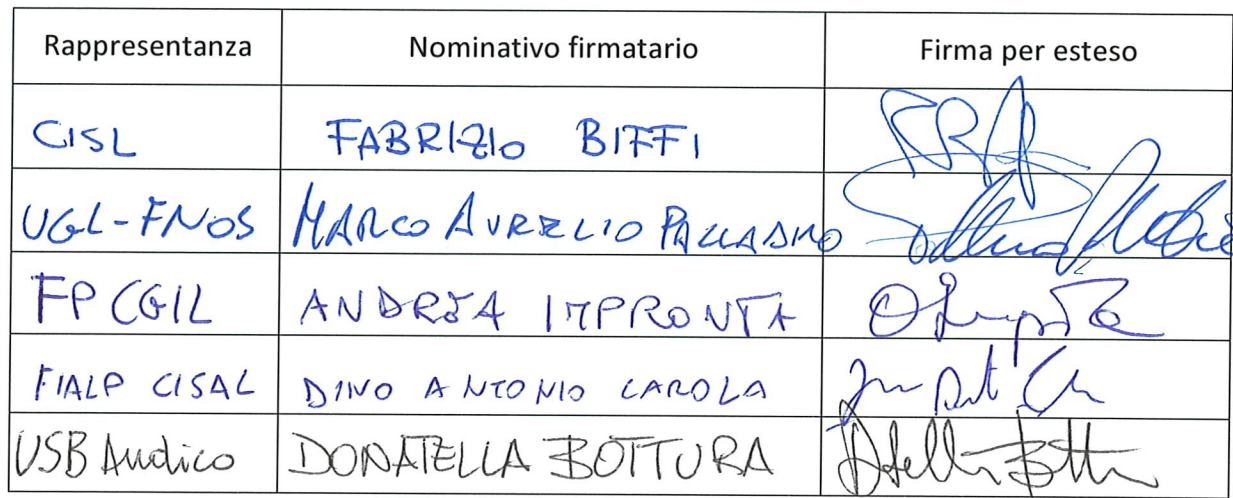 Rappresentanza Nominativo firmatario Firma per esteso
CISL FABRIZIO BIFFI
UGL-FNOS MARCO AURELIO PALLADINO
FP CGIL ANDREA IMPRONTA
FIALP CISAL DINO ANTONIO CAROLA
USB Audico DONATELLA BOTTURA